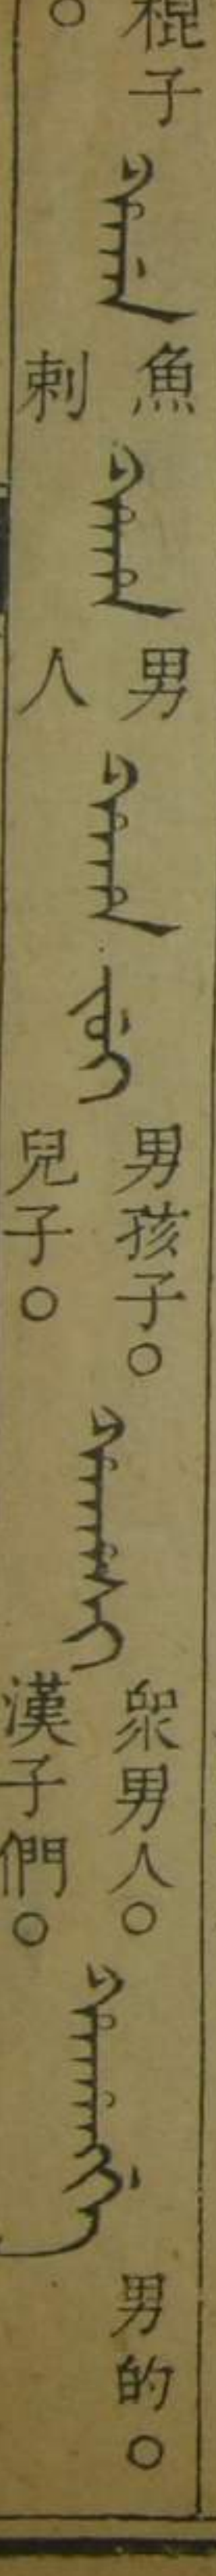 棍子
。
ᡥᠠᡤᠠ
魚
刺
ᡥᠠᡥᠠ
男
人
ᡥᠠᡥᠠ ᠵᡠᡳ
男孩子。
兒子。
ᡥᠠᡥᠠᠰᡳ
眾男人。
漢子們。
男的。